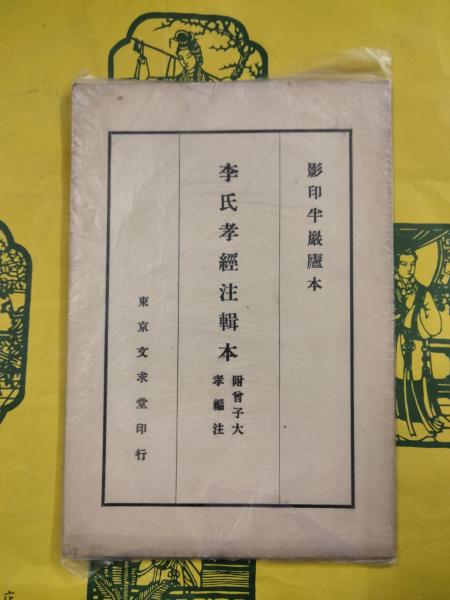 影印半巖廬本
李氏孝經注輯本
附曾子大
孝編注
東京文求堂印行
店